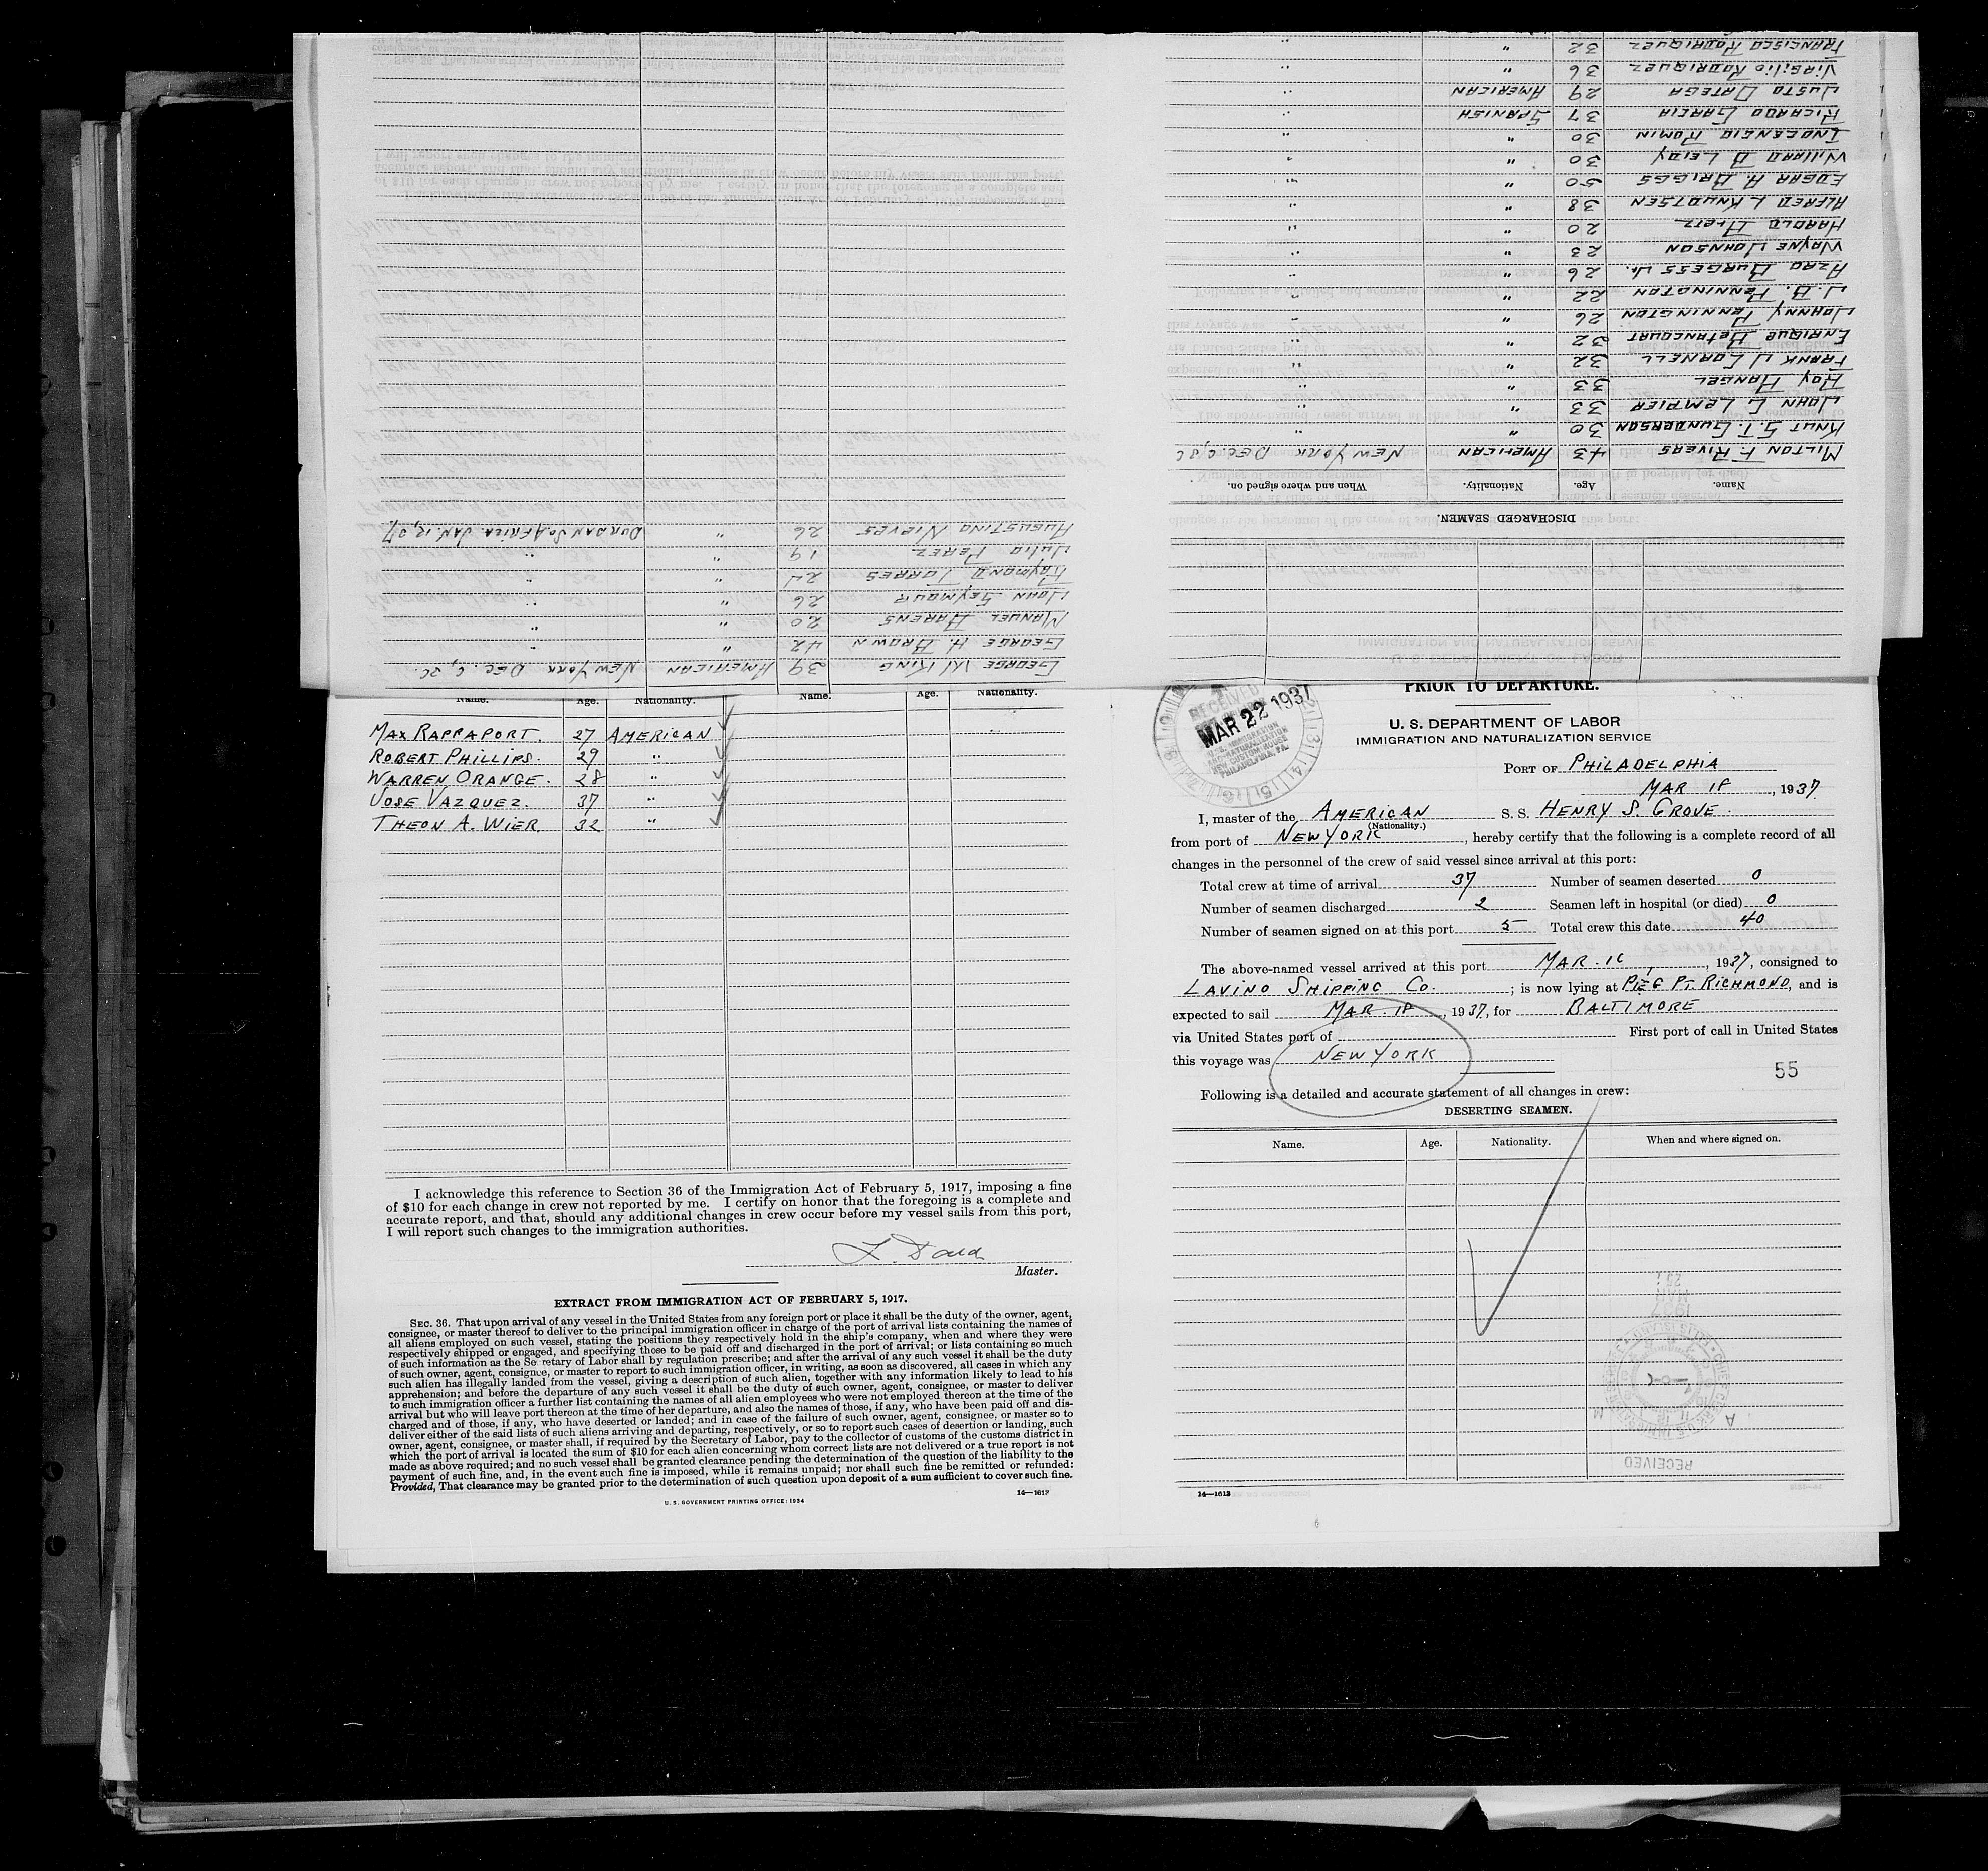 Name. Age. Nationality. Name. Age. Nationality.
MAX RAPPAPORT. 27 AMERICAN
ROBERT PHILLIPS. 29 "
WARREN ORANGE. 28 "
JOSE VAZQUEZ. 37 "
THEON A. WIER 32 "
I acknowledge this reference to Section 36 of the Immigration Act of February 5, 1917, imposing a fine
of $10 for each change in crew not reported by me. I certify on honor that the foregoing is a complete and
accurate report, and that, should any additional changes in crew occur before my vessel sails from this port,
I will report such changes to the immigration authorities.
Master.
EXTRACT FROM IMMIGRATION ACT OF FEBRUARY 5, 1917.
SEC. 36. That upon arrival of any vessel in the United States from any foreign port or place it shall be the duty of the owner, agent,
consignee, or master thereof to deliver to the principal immigration officer in charge of the port of arrival lists containing the names of
all aliens employed on such vessel, stating the positions they respectively hold in the ship's company, when and where they were
respectively shipped or engaged, and specifying those to be paid off and discharged in the port of arrival; or lists containing so much
of such information as the Se retary of Labor shall by regulation prescribe; and after the arrival of any such vessel it shall be the duty
of such owner, agent, consignee, or master to report to such immigration officer, in writing, as soon as discovered, all cases in which any
such alien has illegally landed from the vessel, giving a description of such alien, together with any information likely to lead to his
apprehension; and before the departure of any such vessel it shall be the duty of such owner, agent, consignee, or master to deliver
to such immigration officer a further list containing the names of all alien employees who were not employed thereon at the time of the
arrival but who will leave port thereon at the time of her departure, and also the names of those, if any, who have been paid off and dis-
charged and of those, if any, who have deserted or landed; and in case of the failure of such owner, agent, consignee, or master so to
deliver either of the said lists of such aliens arriving and departing, respectively, or so to report such cases of desertion or landing, such
owner, agent, consignee, or master shall, if required by the Secretary of Labor, pay to the collector of customs of the customs district in
which the port of arrival is located the sum of $10 for each alien concerning whom correct lists are not delivered or a true report is not
made as above required; and no such vessel shall be granted clearance pending the determination of the question of the liability to the
payment of such fine, and, in the event such fine is imposed, while it remains unpaid; nor shall such fine be remitted or refunded:
Provided, That clearance may be granted prior to the determination of such question upon deposit of a sum sufficient to cover such fine.
U. S. GOVERNMENT PRINTING OFFICE: 1934
14—1613
PRIOR TO DEPARTURE.
RECEIVED
MAR 22 1937
NEW CUSTOM HOUSE
PHILADELPHIA, PA.
U. S. DEPARTMENT OF LABOR
IMMIGRATION AND NATURALIZATION SERVICE
PORT OF PHILADELPHIA
MAR 18, 1937.
I, master of the AMERICAN S. S. HENRY S. GROVE.
(Nationality.)
from port of NEW YORK, hereby certify that the following is a complete record of all
changes in the personnel of the crew of said vessel since arrival at this port:
Total crew at time of arrival 37 Number of seamen deserted 0
Number of seamen discharged 2 Seamen left in hospital (or died) 0
Number of seamen signed on at this port 5 Total crew this date 40
The above-named vessel arrived at this port MAR. 16, 1937, consigned to
LAVINO SHIPPING CO.; is now lying at PIE 6 PT. RICHMOND, and is
expected to sail MAR. 18, 1937, for BALTIMORE
via United States port of First port of call in United States
this voyage was NEW YORK
55
Following is a detailed and accurate statement of all changes in crew:
DESERTING SEAMEN.
Name. Age. Nationality. When and where signed on.
RECEIVED
14—1613
DISCHARGED SEAMEN.
Name. Age. Nationality. When and where signed on.
MILTON F. RIVERS 43 AMERICAN NEW YORK DEC. 6, 36
KNUT S. T. GUNDERSON 30 " "
JOHN C LEMPIER 33 " "
ROY HANGEL 33 " "
FRANK J CORNELL 32 " "
ENRIQUE BETANCOURT 32 " "
JOHNNY PENNINGTON 26 " "
J. B. PENNINGTON 22 " "
AZRO BURGESS JR. 26 " "
WAYNE JOHNSON 23 " "
HAROLD DIETZ 20 " "
ALFRED L KNUDTSEN 38 " "
EDGAR A. BRIGGS 50 " "
WILLARD D LEIDY 30 " "
INOLENCIO ROMIN 30 " "
RICARDO GARCIA 37 SPANISH "
JUSTO ORTEGA 29 AMERICAN "
VIRGILIO RODRIQUEZ 36 " "
FRANCISCO RODRIQUEZ 32 " "
GEORGE W KING 39 AMERICAN NEW YORK DEC. 6, 36.
GEORGE H. BROWN 42 " "
MANUEL ARENS 20 " "
JOHN SEYMOUR 26 " "
RAYMOND TORRES 24 " "
JULIO PEREZ 19 " "
AUGUSTINO NIEVES 26 " DURBAN SO. AFRICA JAN. 12, 37